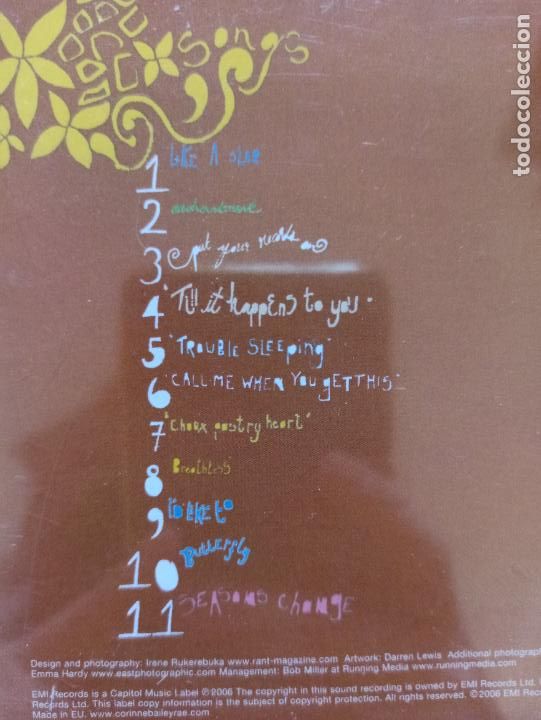 songs
1 Like A Star
2 enchantment
3 put your records on
4 "Till it happens to you"
5 "TROUBLE SLEEPING"
6 "CALL ME WHEN YOU GET THIS"
7 "Choux pastry heart"
8 Breathless
9 I'D LIKE to
10 Butterfly
11 SEASONS CHANGE
Design and photography: Irene Rukerebuka www.rant-magazine.com Artwork: Darren Lewis Additional photograp
Emma Hardy www.eastphotographic.com Management: Bob Miller at Running Media www.runningmedia.com
EMI Records is a Capitol Music Label ℗2006 The copyright in this sound recording is owned by EMI Records Ltd.
Records Ltd. This label copy information is the subject of copyright protection. All rights reserved. ©2006 EMI Rec
Made in EU. www.corinnebaileyrae.com
todocoleccion